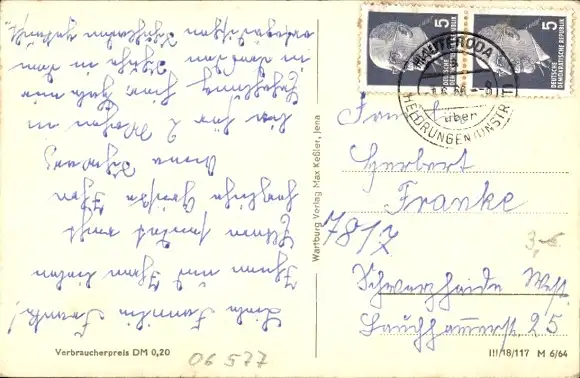 Liebe Familie Franke!
Ihnen und Ihren lieben
Eltern sendet recht
herzliche Grüße Ihre
Anna Schwarz
bin für 2 Wochen in
Erholung hier, habe mir
in
Verbraucherpreis DM 0,20
06 577
Wartburg Verlag Max Keßler, Jena
5
DEUTSCHE
DEMOKRATISCHE REPUBLIK
5
DEUTSCHE
DEMOKRATISCHE REPUBLIK
HAUTERODA
über
HELDRUNGEN (UNSTRUT)
Herbert
Franke
7817
3,-€
Schwarzheide West.
Lauchhammerstr. 25
III/18/117 M 6/64